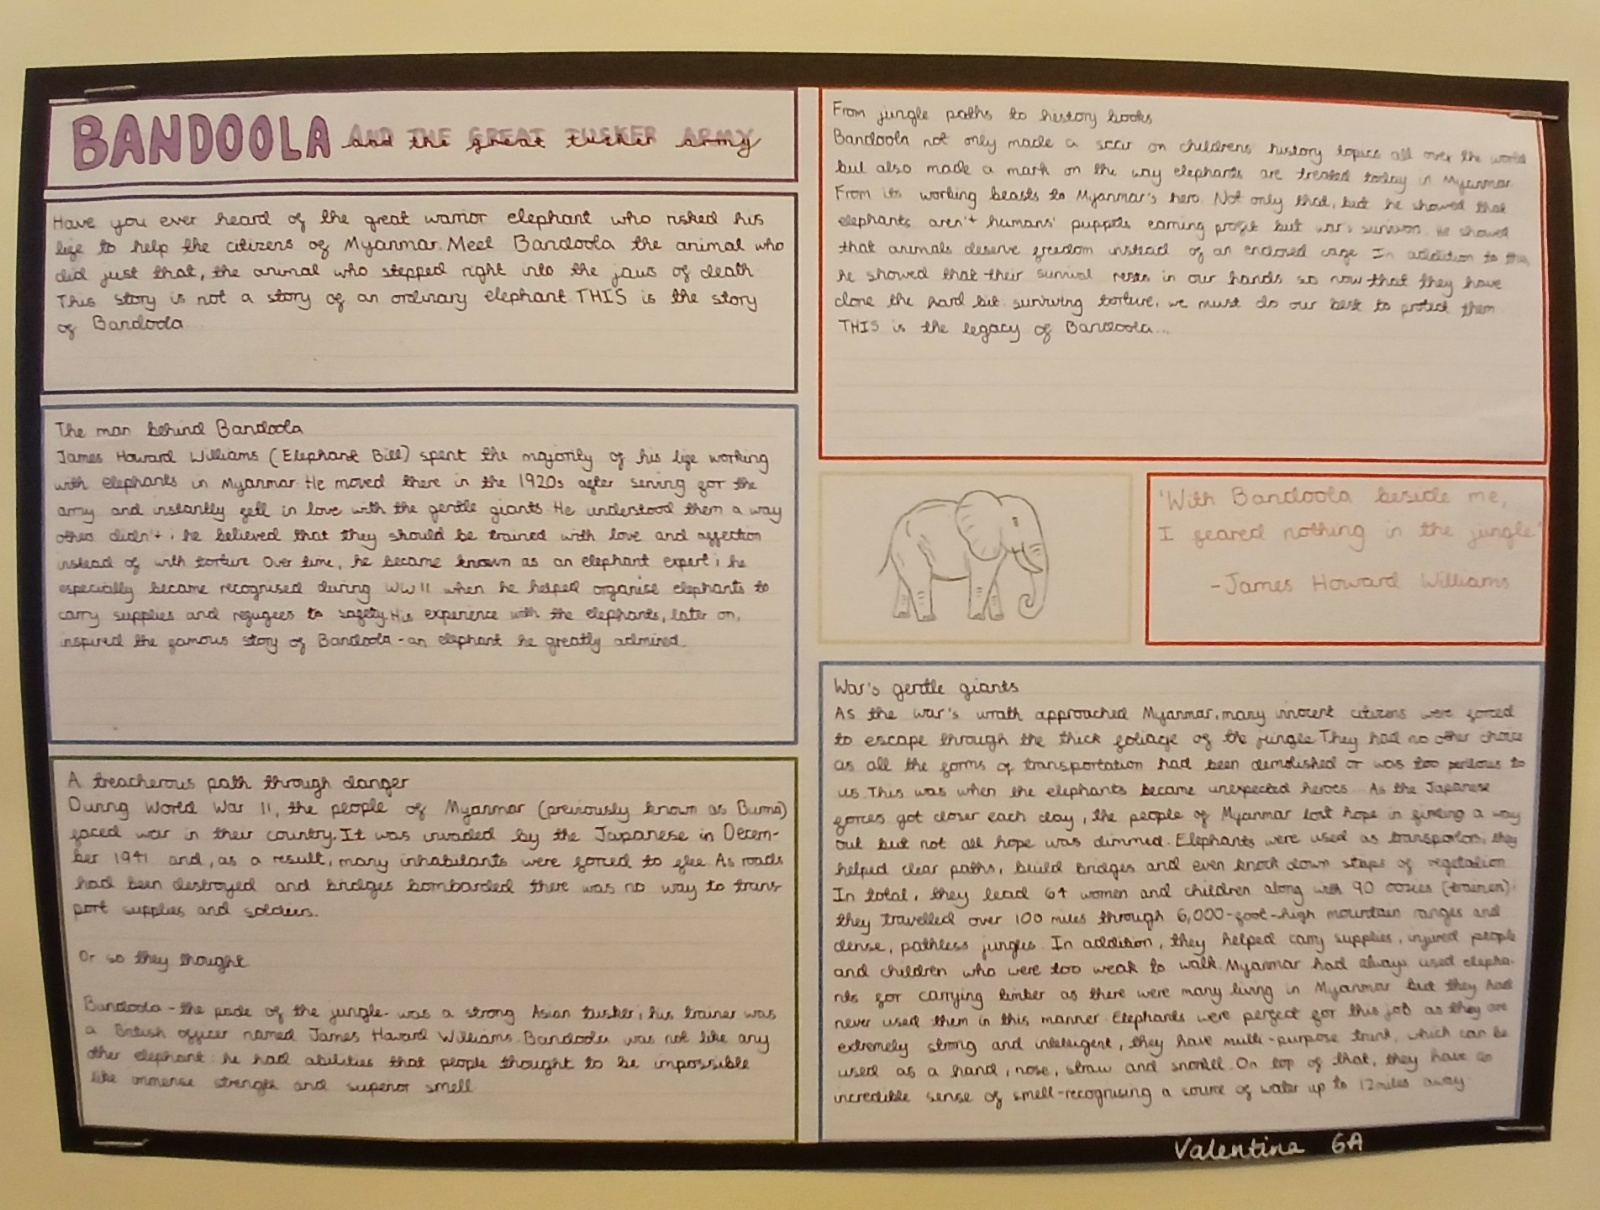 BANDOOLA AND THE GREAT TUSKER ARMY
Have you ever heard of the great warrior elephant who risked his
life to help the citizens of Myanmar. Meet Bandoola the animal who
did just that, the animal who stepped right into the jaws of death
This story is not a story of an ordinary elephant. THIS is the story
of Bandoola
The man behind Bandoola
James Howard Williams (Elephant Bill) spent the majority of his life working
with elephants in Myanmar. He moved there in the 1920s after serving for the
army and instantly fell in love with the gentle giants. He understood them a way
others didn't; he believed that they should be trained with love and affection
instead of with torture. Over time, he became known as an elephant expert; he
especially became recognised during WW11 when he helped organise elephants to
carry supplies and refugees to safety. His experience with the elephants, later on,
inspired the famous story of Bandoola - an elephant he greatly admired.
A treacherous path through danger
During World War 11, the people of Myanmar (previously known as Burma)
faced war in their country. It was invaded by the Japanese in Decem-
ber 1941 and, as a result, many inhabitants were forced to flee. As roads
had been destroyed and bridges bombarded there was no way to trans-
port supplies and soldiers.
Or so they thought
Bandoola - the pride of the jungle - was a strong Asian tusker; his trainer was
a British officer named James Haward Williams. Bandoola was not like any
other elephant: he had abilities that people thought to be impossible
like immense strength and superior smell
From jungle paths to history books
Bandoola not only made a scar on childrens history topics all over the world
but also made a mark on the way elephants are treated today in Myanmar
From its working beasts to Myanmar's hero. Not only that, but he showed that
elephants aren't humans' puppets earning profit but war survivors. He showed
that animals deserve freedom instead of an enclosed cage. In addition to this,
he showed that their survival rests in our hands so now that they have
done the hard bit surviving torture, we must do our best to protect them
THIS is the legacy of Bandoola...
'With Bandoola beside me,
I feared nothing in the jungle'
-James Howard Williams
War's gentle giants
As the war's wrath approached Myanmar, many innocent citizens were forced
to escape through the thick foliage of the jungle. They had no other choice
as all the forms of transportation had been demolished or was too perilous to
us. This was when the elephants became unexpected heroes. As the Japanese
forces got closer each day, the people of Myanmar lost hope in finding a way
out but not all hope was dimmed. Elephants were used as they
helped clear paths, build bridges and even knock down of vegetation
In total, they lead 64 women and children along with 90 oozies (trainers);
they travelled over 100 miles through 6,000-foot-high mountain ranges and
dense, pathless jungles. In addition, they helped carry supplies, injured people
and children who were too weak to walk. Myanmar had always used elepha-
nts for carrying timber as there were many living in Myanmar but they had
never used them in this manner. Elephants were perfect for this job as they are
extremely strong and intelligent, they have multi-purpose trunk, which can be
used as a hand, nose, straw and snorkel. On top of that, they have an
incredible sense of smell - recognising a source of water up to 12 miles away
Valentina 6A